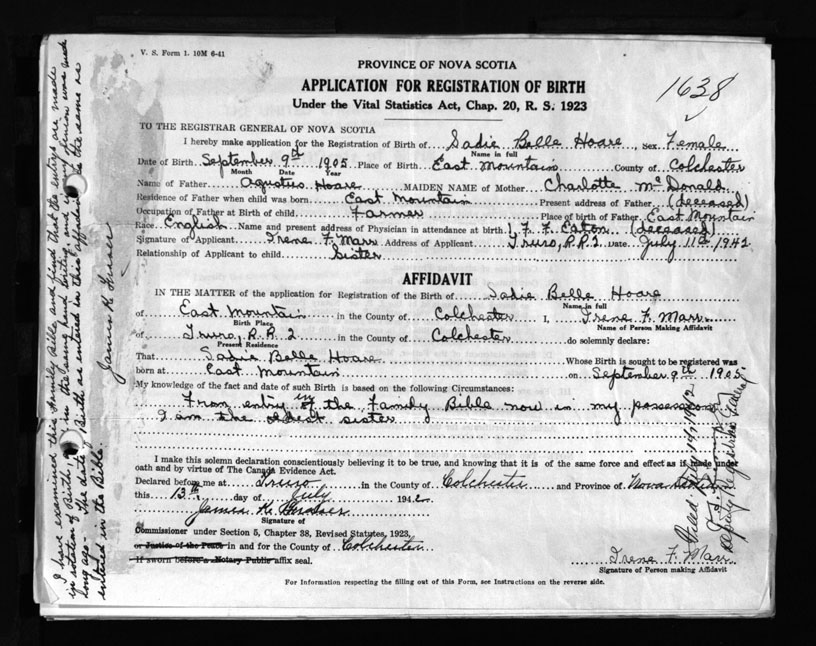 V. S. Form 1. 10M 6-41
PROVINCE OF NOVA SCOTIA
APPLICATION FOR REGISTRATION OF BIRTH
1638
Under the Vital Statistics Act, Chap. 20, R. S. 1923
TO THE REGISTRAR GENERAL OF NOVA SCOTIA
I hereby make application for the Registration of Birth of Sadie Belle Hoare, Sex Female
Name in full
Date of Birth September 9th 1905 Place of Birth East Mountain County of Colchester
Month Date Year
Name of Father Agustus Hoare MAIDEN NAME of Mother Charlotte McDonald
Residence of Father when child was born East Mountain Present address of Father (deceased)
Occupation of Father at Birth of child Farmer Place of birth of Father East Mountain
Race English Name and present address of Physician in attendance at birth F. F. Eaton (deceased)
Signature of Applicant Irene F. Marr Address of Applicant Truro, R.R.2. Date July 11th 1942
Relationship of Applicant to child Sister
AFFIDAVIT
IN THE MATTER of the application for Registration of the Birth of Sadie Belle Hoare
Name in full
of East Mountain in the County of Colchester I, Irene F. Marr
Birth Place Name of Person Making Affidavit
of Truro, R.R.2 in the County of Colchester do solemnly declare:
Present Residence
That Sadie Belle Hoare Whose Birth is sought to be registered was
born at East Mountain on September 9th 1905
My knowledge of the fact and date of such Birth is based on the following Circumstances:
From entry in the Family Bible now in my possession
I am the oldest sister
I make this solemn declaration conscientiously believing it to be true, and knowing that it is of the same force and effect as if made under
oath and by virtue of The Canada Evidence Act.
Declared before me at Truro in the County of Colchester and Province of Nova Scotia
this 13th day of July 1942
James K.
Signature of
Commissioner under Section 5, Chapter 38, Revised Statutes, 1923,
or Justice of the Peace in and for the County of Colchester
If sworn before a Notary Public affix seal.
Irene F. Marr
Signature of Person making Affidavit
For Information respecting the filling out of this Form, see Instructions on the reverse side.
I have examined this Family Bible and find that the entries are made
in rotation of Birth, in the same hand writing, and in my opinion was made
long ago. The date of Birth as entered in this application is the same as
entered in the Bible.
James K.
Filed July 14, 1942
Deputy Registrar General